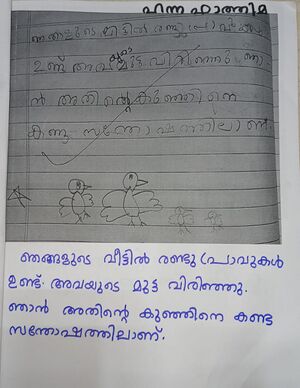 ഹന്ന ഫാത്തിമ
ഞങ്ങളുടെ വീട്ടിൽ രണ്ടു പ്രാവുകൾ
ഉണ്ട് അവ മുട്ട വിരിഞ്ഞു
ൻ അതിന്റെ കുഞ്ഞിനെ
കണ്ടു സന്തോഷത്തിലാണ്
ഞങ്ങളുടെ വീട്ടിൽ രണ്ടു പ്രാവുകൾ
ഉണ്ട്. അവയുടെ മുട്ട വിരിഞ്ഞു.
ഞാൻ അതിന്റെ കുഞ്ഞിനെ കണ്ട
സന്തോഷത്തിലാണ്.